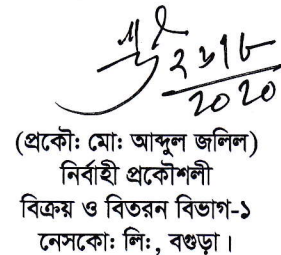 ২১৮
2020
(প্রকৌ: মো: আব্দুল জলিল)
নির্বাহী প্রকৌশলী
বিক্রয় ও বিতরন বিভাগ-১
নেসকো: লি:, বগুড়া।